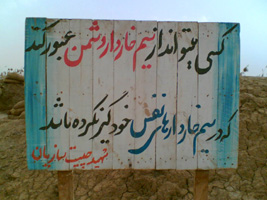 کسی میتواند از سیم خاردار دشمن عبور کند
که در سیم خاردارهای نفس خود گیر نکرده باشد
شهید چیت سازیان